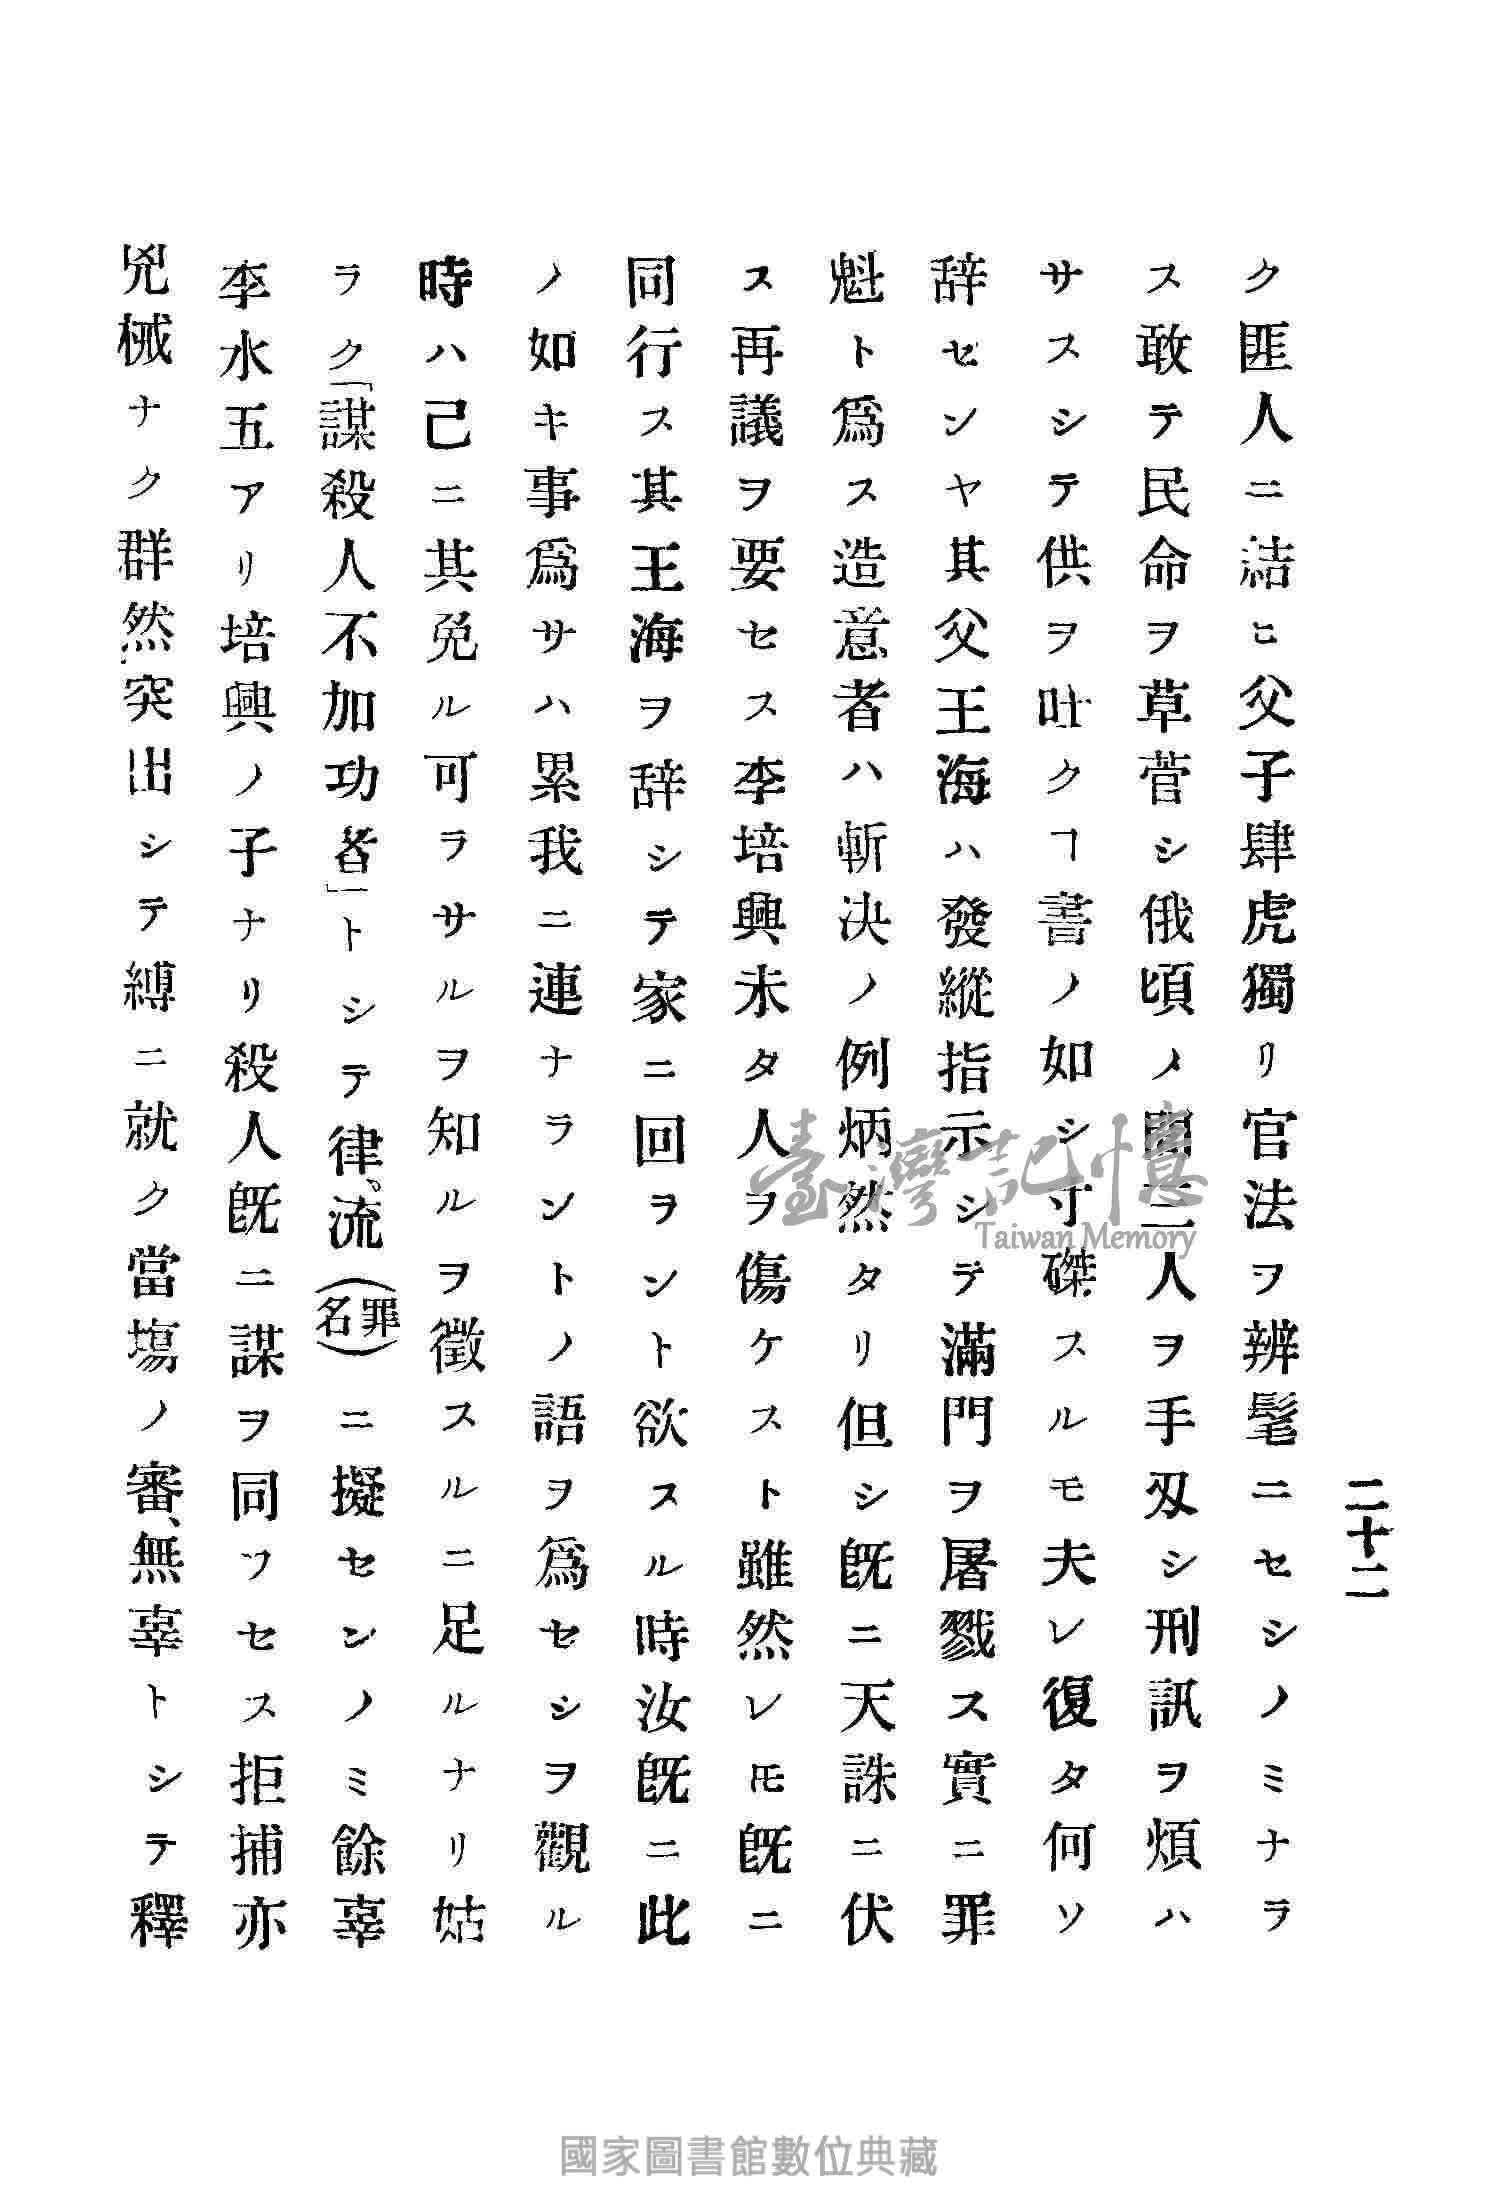 二十二
ク匪人ニ結ヒ父子肆虎獨リ官法ヲ辨髦ニセシノミナラ
ス敢テ民命ヲ草菅シ俄頃ノ間三人ヲ手刄シ刑訊ヲ煩ハ
サスシテ供ヲ吐クヿ書ノ如シ寸磔スルモ夫レ復タ何ソ
辞センヤ其父王海ハ發縱指示シテ滿門ヲ屠戮ス實ニ罪
魁ト爲ス造意者ハ斬決ノ例炳然タリ但シ旣ニ天誅ニ伏
ス再議ヲ要セス李培興未タ人ヲ傷ケスト雖然レモ旣ニ
同行ス其王海ヲ辞シテ家ニ回ヲント欲スル時汝旣ニ此
ノ如キ事爲サハ累我ニ連ナラントノ語ヲ爲セシヲ觀ル
時ハ己ニ其免ル可ラサルヲ知ルヲ徵スルニ足ルナリ姑
ラク「謀殺人不加功者」トシテ律、流(罪名)ニ擬センノミ餘辜
李水五アリ培興ノ子ナリ殺人旣ニ謀ヲ同フセス拒捕亦
兇械ナク群然突出シテ縛ニ就ク當塲ノ審、無辜トシテ釋
臺灣記憶
Taiwan Memory
國家圖書館數位典藏